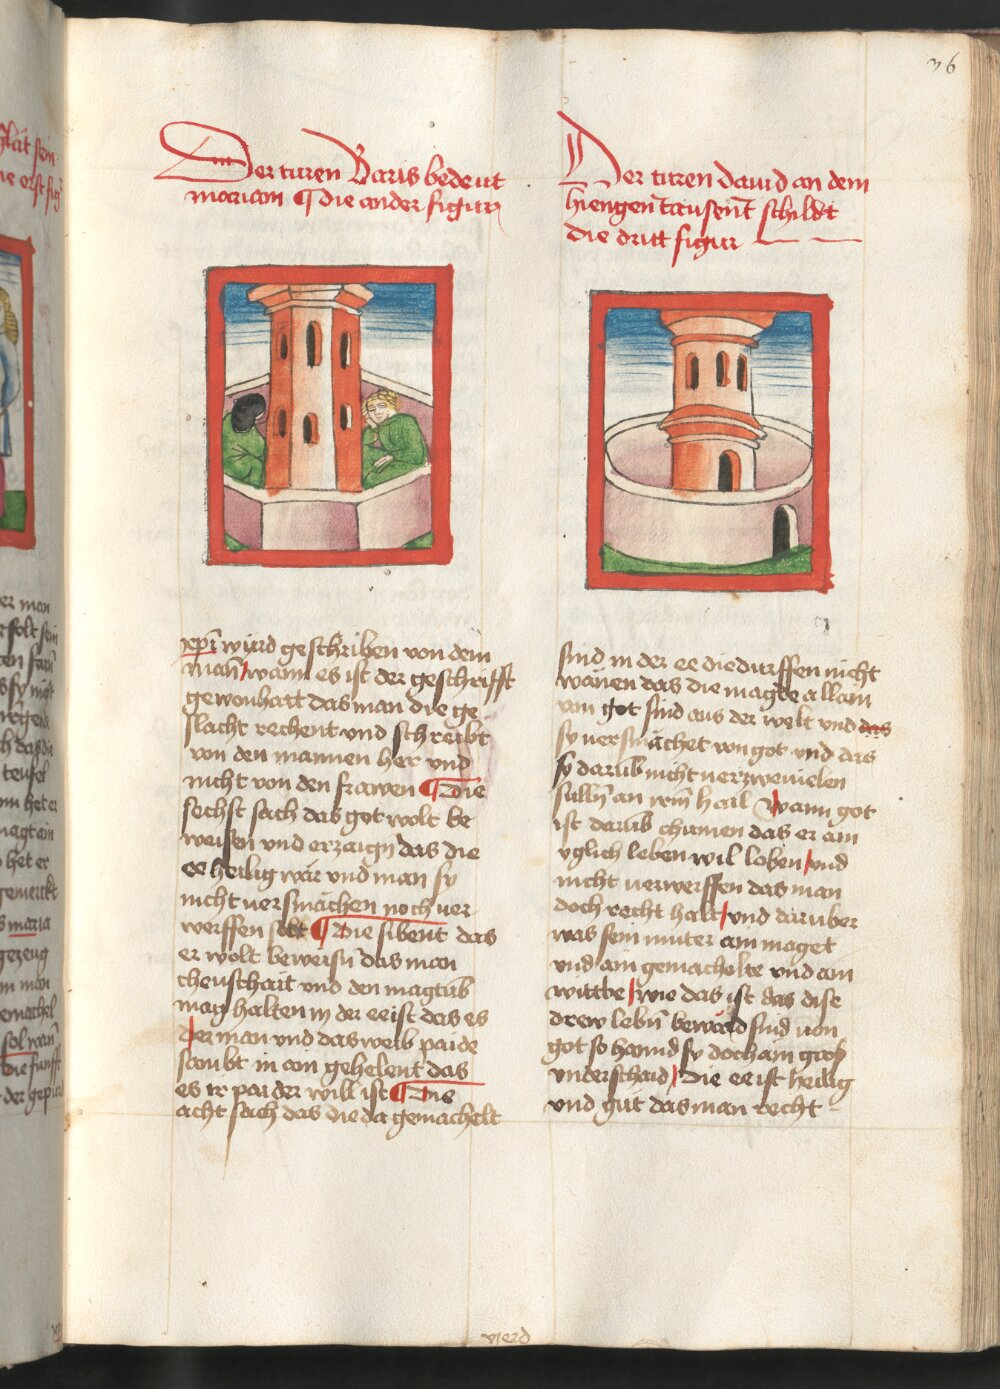 36
Der turen Baris bedeut
mariam ¶ die ander figur
jepr̄ wurd geschriben von dem
man̄ / wann es ist der geschrifft
gewonhatt das man die ge
slacht rechent vnd schreibt
von den mannen her vnd
nicht von den frawen ¶ Die
sechst sach das got wolt be
weisen vnd erzaign das die
ee heilig wär vnd man sy
nicht versmächen noch ver
werffen solt ¶ Die sibent das
er wolt beweisn̄ das man
cheuschait vnd den magtub
mag halten in der ee ist das es
der man vnd das weib paide
sambt in ain gehelent das
es ir paider will ist ¶ Die
acht sach das die da gemachelt
Der turen dauid an dem
hiengen tausent schildt
die dritt figur
sind in der ee die durffen nicht
wänen das die magde allain
von got sind aus der welt vnd das
sy uersmächet von got vnd das
sy darūb nicht uerzweiuelen
sulln̄ an irm hail Wann got
ist darūb chumen das er ain
yglich leben wil loben / vnd
nicht uerwerffen das man
doch recht halt / vnd darüber
was sein muter ain maget
vnd ain gemachelte vnd ain
wittbe / wie das ist das dise
drew lebn̄ bewärd sind uon
got so hannd sy doch ain gross
vnderschaid / die ee ist heilig
vnd gut das man recht
vierd